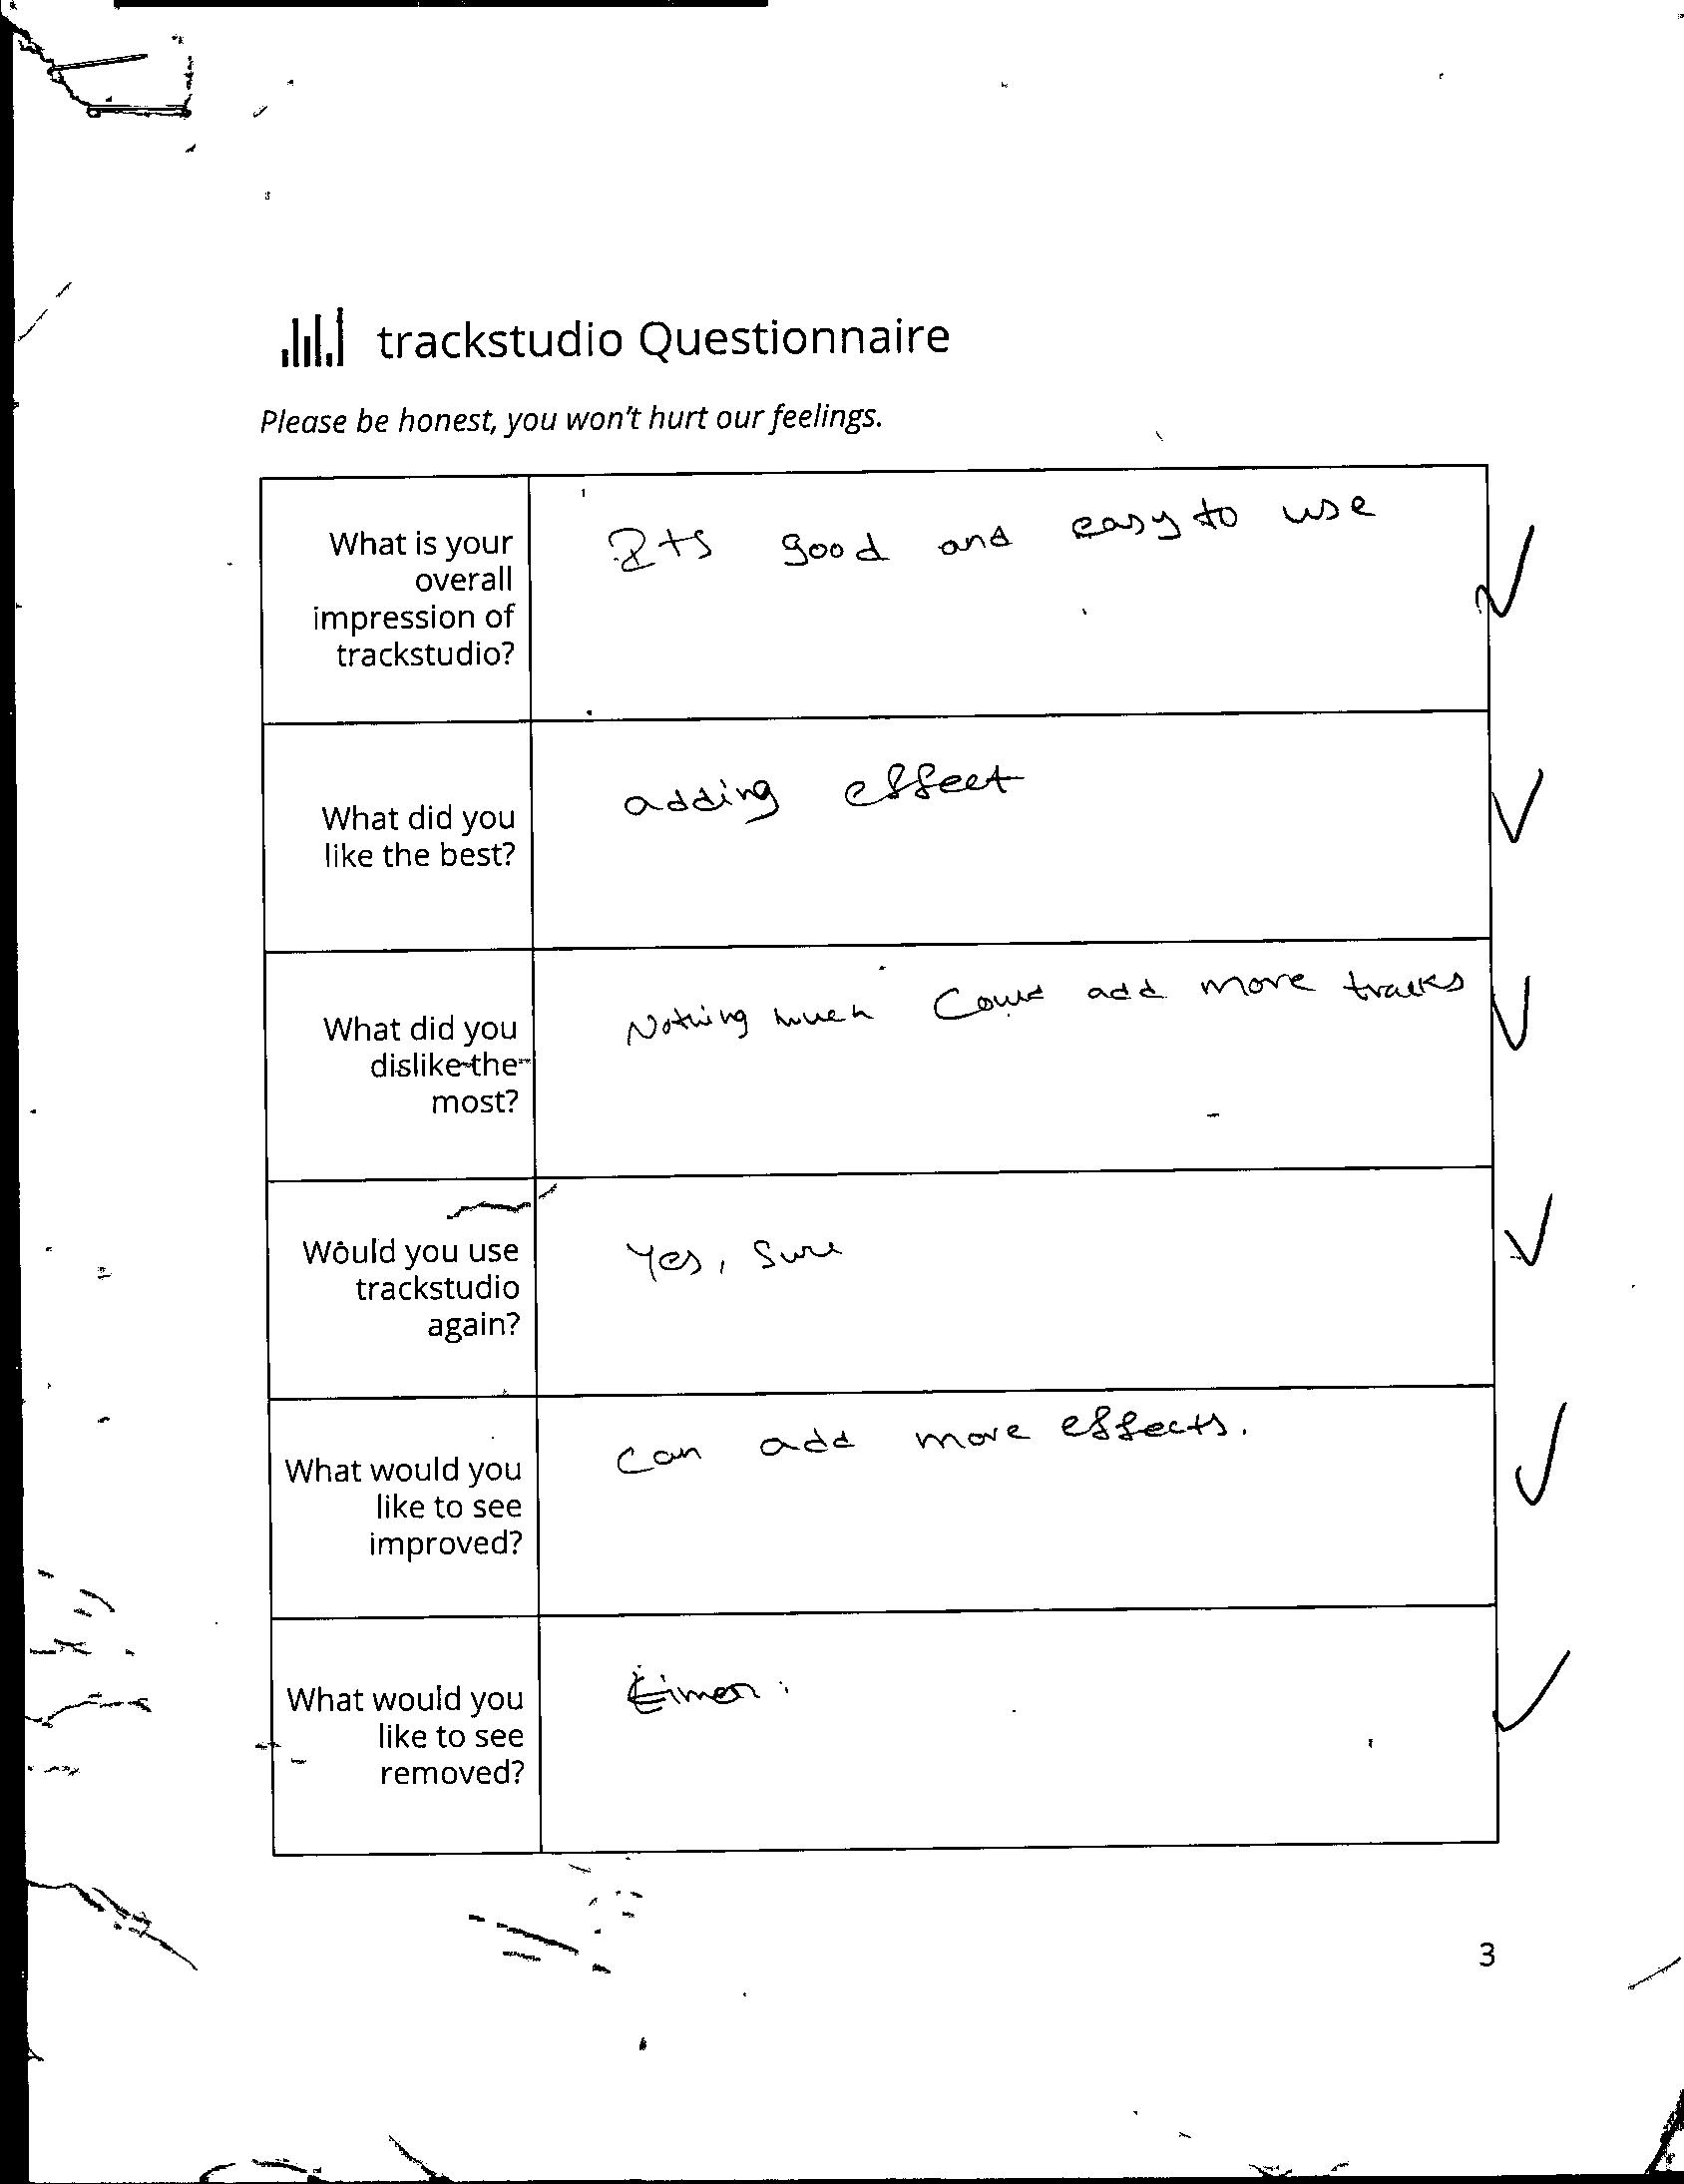 trackstudio Questionnaire
Please be honest, you won't hurt our feelings.
What is your
overall
impression of
trackstudio?
Its good and easy to use
What did you
like the best?
adding effect
What did you
dislike the
most?
Nothing much Could add more tracks
Would you use
trackstudio
again?
Yes, Sure
What would you
like to see
improved?
Can add more effects.
What would you
like to see
removed?
3